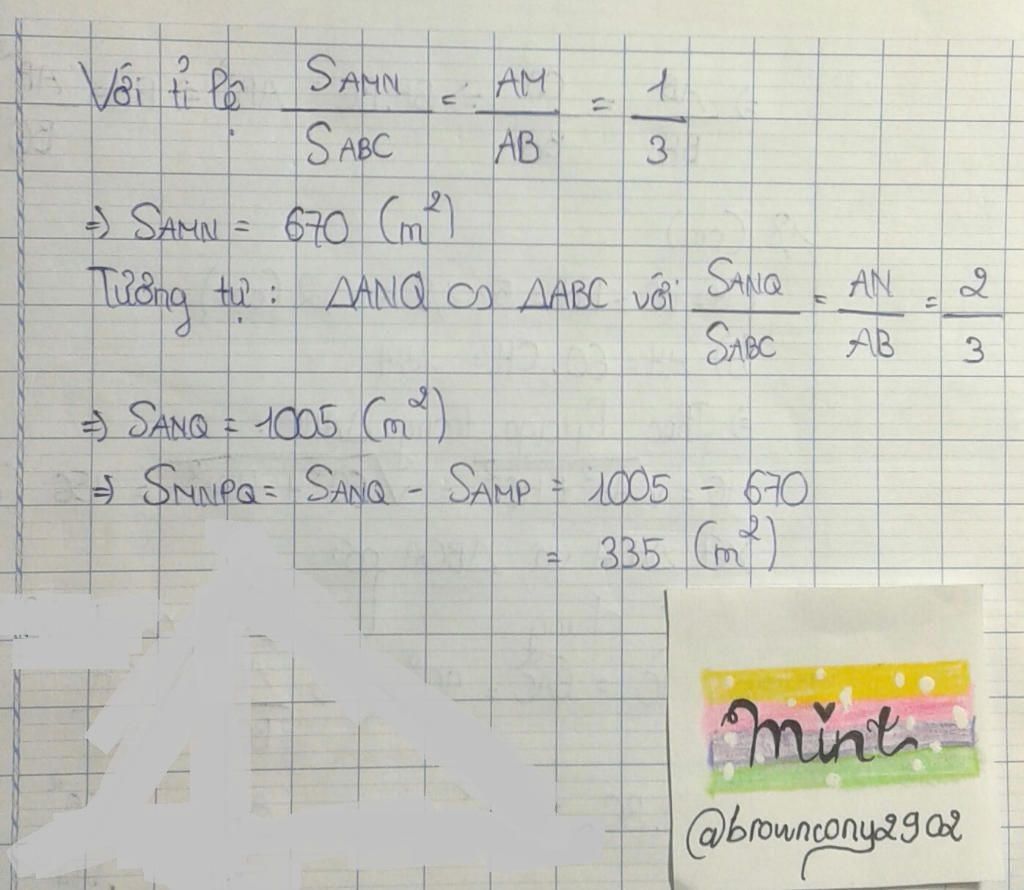 Với tỉ lệ S AMN / S ABC = AM / AB = 1 / 3
=> S AMN = 670 (m²)
Tương tự : ΔANQ ∽ ΔABC với S ANQ / S ABC = AN / AB = 2 / 3
=> S ANQ = 1005 (m²)
=> S MNPQ = S ANQ - S AMP = 1005 - 670
= 335 (m²)
mint
@browncony2902